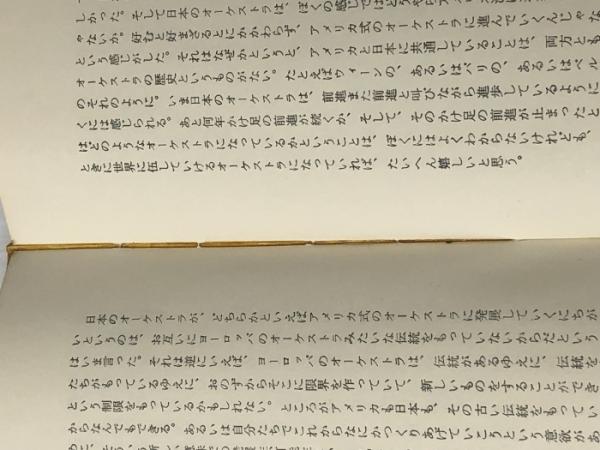 しかった。そして日本のオーケストラは、ぼくの感じではどうやらアメリカ
ゃないか。好むと好まざるとにかかわらず、アメリカ式のオーケストラに進んでいくんじゃな
という感じがした。それはなぜかというと、アメリカと日本に共通していることは、両方とも
オーケストラの歴史というものがない。たとえばウィーンの、あるいはパリの、あるいはベル
のそれのように。いま日本のオーケストラは、前進また前進と叫びながら進歩しているように
くには感じられる。あと何年かけ足の前進が続くか、そして、そのかけ足の前進が止まったと
は、どのようなオーケストラになっているかということは、ぼくにはよくわからないけれども、
ときに世界に伍していけるオーケストラになっていれば、たいへん嬉しいと思う。
日本のオーケストラが、どちらかといえばアメリカ式のオーケストラに発展していくにちが
いというのは、お互いにヨーロッパのオーケストラみたいな伝統をもっていないからだという
はいま言った。それは逆にいえば、ヨーロッパのオーケストラは、伝統があるゆえに、伝統を
たちがもっているゆえに、おのずからそこに限界を作っていて、新しいものをすることができ
という制限をもっているかもしれない。ところがアメリカも日本も、その古い伝統をもってい
からなんでもできる。あるいは自分たちでこれからなにかつくりあげていこうという意欲があ